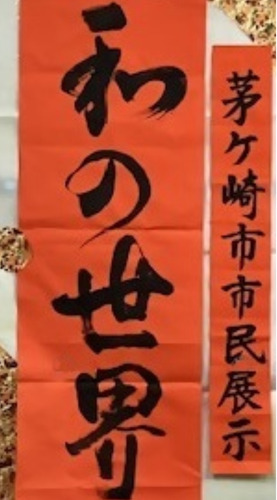 茅ケ崎市市民展示
和の世界